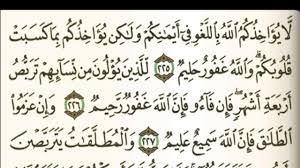 لَّا يُؤَاخِذُكُمُ ٱللَّهُ بِٱللَّغْوِ فِىٓ أَيْمَـٰنِكُمْ وَلَـٰكِن يُؤَاخِذُكُم بِمَا كَسَبَتْ
قُلُوبُكُمْ ۗ وَٱللَّهُ غَفُورٌ حَلِيمٌ ٢٢٥ لِّلَّذِينَ يُؤْلُونَ مِن نِّسَآئِهِمْ تَرَبُّصُ
أَرْبَعَةِ أَشْهُرٍ ۖ فَإِن فَآءُو فَإِنَّ ٱللَّهَ غَفُورٌ رَّحِيمٌ ٢٢٦ وَإِنْ عَزَمُوا۟
ٱلطَّلَـٰقَ فَإِنَّ ٱللَّهَ سَمِيعٌ عَلِيمٌ ٢٢٧ وَٱلْمُطَلَّقَـٰتُ يَتَرَبَّصْنَ